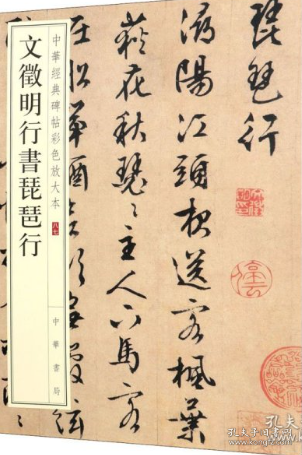 琵琶行
潯陽江頭夜送客楓葉
荻花秋瑟〻主人下馬客
在船舉酒欲飲無管絃
中華經典碑帖彩色放大本
文徵明行書琵琶行
中華書局
孔夫子旧书网